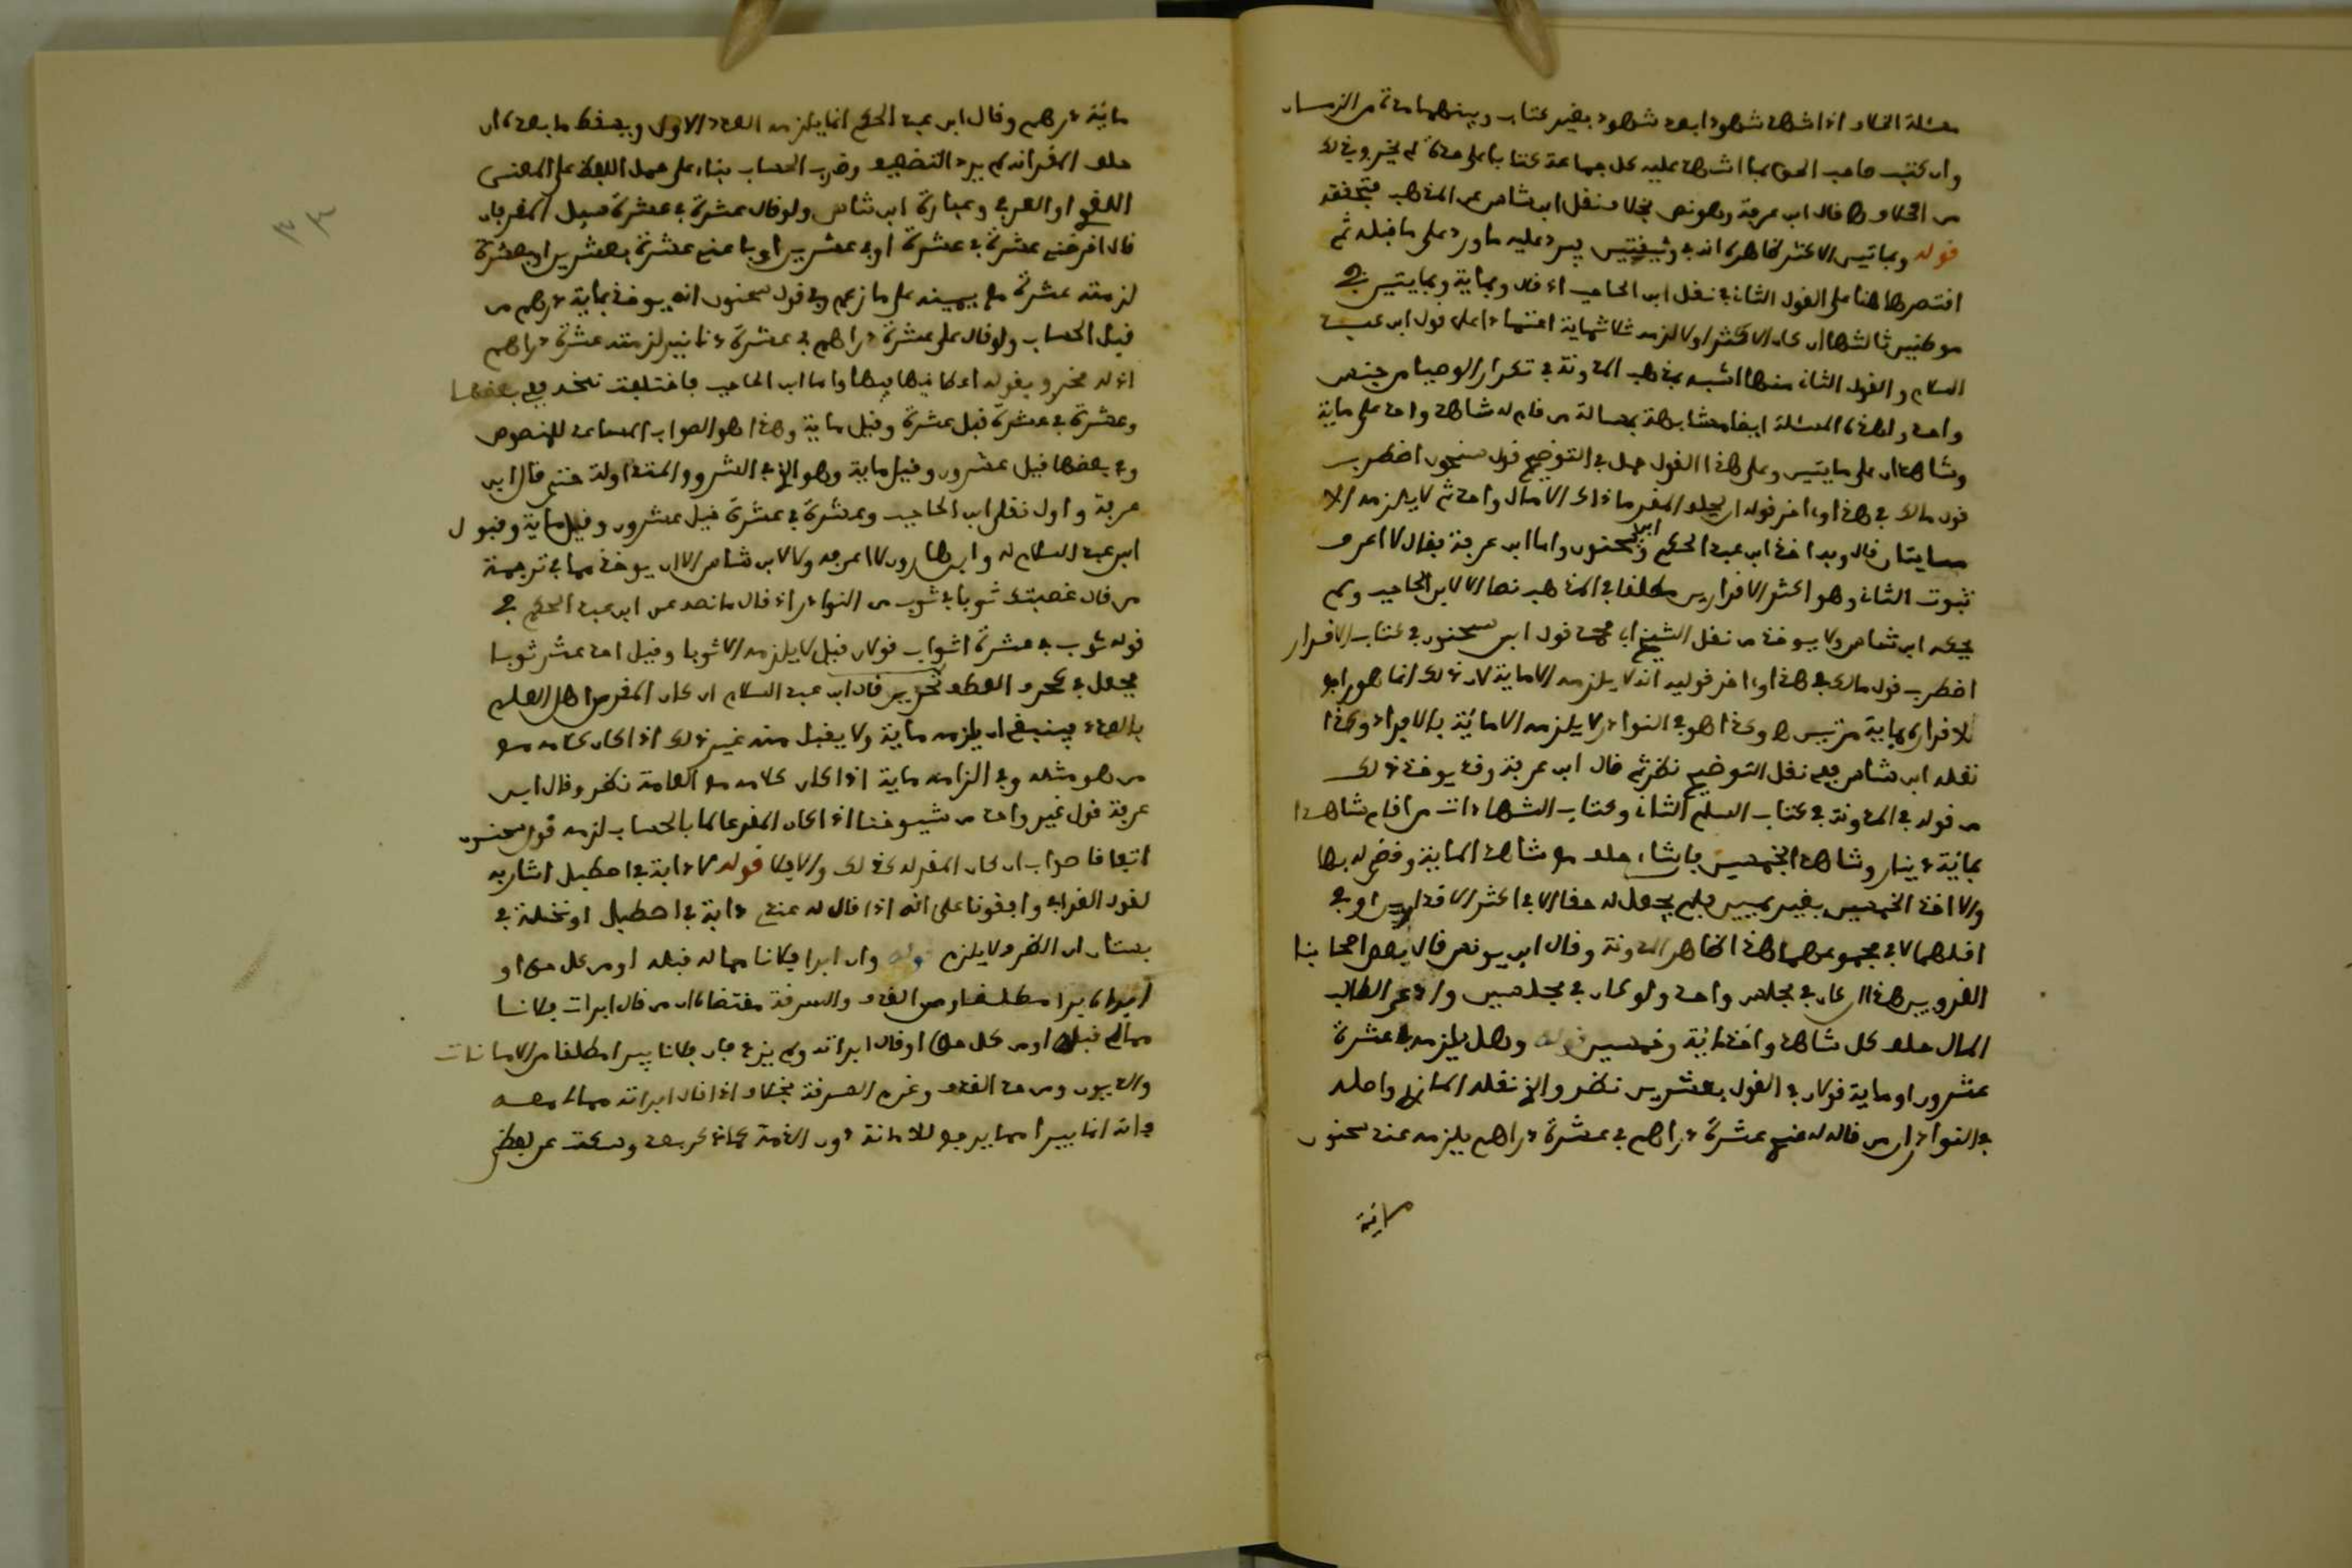 مسئلة الخلاف اذا اشهد شهودا بعد شهود بغير كتاب وبينهما مدة من الزمان
وان كتب صاحب الحق بما اشهد عليه كل جماعة كتابا على حدة لم يختلف في ذلك
من احكام ها قال ابن عرفة وهو نص بخلاف نقل ابن شاس عن المذهب فتحققه
قوله وبمائتين الاكثر ظاهره انه في وثيقتين يرد عليه ما ورد على ما قبله ثم
اقتصر ها هنا على القول الثاني نقل ابن الحاجب اذ قال وبماية وبمايتين في
موطنين ثالثها ان كان الاكثر اولا لزمه ثلاثماية اعتمادا على قول ابن عبد
السلام والقول الثاني منها اشبه بمذهب المدونة في تكرار الوصيا من جنس
واحد ولهذه المسئلة ايضا مشابهة بمسالة من قام له شاهد واحد على ماية
وشاهدان على مايتين وعلى هذا القول حمل في التوضيح قول سحنون اضطرب
قول مالك في هذا واخر قوله ان يحلف المقر ما ذاك الا مال واحد ثم لا يلزمه الا
مايتان قال وبه اخذ ابن عبد الحكم وابن سحنون واما ابن عرفة فقال لا اعرف
ثبوت الثاني وهو اكثر الاقرارين مطلقا في المذهب نصا الا لابن الحاجب ولم
يحكه ابن شاس ولا يوخذ من نقل الشيخ ابي محمد قول ابن سحنون في كتاب الاقرار
اضطرب قول مالك في هذا واخر قوليه انه لا يلزمه الا ماية لان ذلك انما هو راجع
للاقرار بماية مرتين ه وكذا هو في النوادر لا يلزمه الا مائة بالافراد وكذا
نقله ابن شاس ففي نقل التوضيح نظر ثم قال ابن عرفة وقد يوخذ ذلك
من قوله في المدونة في كتاب السلم الثاني وكتاب الشهادات من اقام شاهدا
بمائة دينار وشاهدا بخمسين فان شاء حلف مع شاهد الماية وقضي له بها
والا اخذ الخمسين بغير يمين فلم يجعل له حقا الا في اكثر الاقرارين او في
اقلهما لا في مجموعهما هذا ظاهر المدونة وقال ابن يونس قال بعض اصحابنا
القرويين هذا ان كان في مجلس واحد ولو كان في مجلسين وادعى الطالب
المال حلف مع كل شاهد واخذ مائة وخمسين قوله وهل يلزمه في عشرة
عشرون او ماية قولان في القول بعشرين نظر والاخ نقله المازري واصله
في النوادر ان من قال له عندي عشرة دراهم في عشرة دراهم يلزمه عند سحنون
ماية
ماية درهم وقال ابن عبد الحكم انما يلزمه العدد الاول ويسقط ما بعده ان
حلف المقر انه لم يرد التضعيف وضرب الحساب بناء على حمل اللفظ على المعنى
اللغوي او العرفي وعبارة ابن شاس ولو قال عشرة في عشرة قبل المقر فان
قال اقرضني عشرة في عشرة او في عشرين او باعني عشرة بعشرين او بعشرة
لزمته عشرة مع يمينه على ما زعم وفي قول سحنون انه يوخذ بماية درهم من
قبل الحساب ولو قال علي عشرة دراهم في عشرة دنانير لزمته عشرة دراهم
اذ له مخرج بقوله اعطانيها فيها واما ابن الحاجب فاختلفت نسخه ففي بعضها
وعشرة في عشرة قيل عشرة وقيل ماية وهذا هو الصواب المساعد للنصوص
وفي بعضها قيل عشرون وقيل ماية وهو الاخ في الشروح المتداولة حتى قال ابن
عرفة واول نقل ابن الحاجب وعشرة في عشرة قيل عشرون وقيل ماية وقبول
ابن عبد السلام له وابن هارون لا اعرفه ولا لابن شاس الا ان يوخذ مما في ترجمة
من قال غصبتك ثوبا في ثوب من النوادر اذ قال ما نصه عن ابن عبد الحكم في
قوله ثوب في عشرة اثواب قولان قيل لا يلزمه الا ثوبا وقيل احد عشر ثوبا
يجعل في كحرف العطف تحرير قال ابن عبد السلام ان كان المقر من اهل العلم
بالعدد فينبغي ان يلزمه ماية ولا يقبل منه غير ذلك اذا كان كلامه مع
من هو مثله وفي الزامه ماية اذا كان كلامه مع العامة نظر وقال ابن
عرفة قول غير واحد من شيوخنا اذا كان المقر عالما بالحساب لزمه قول سحنون
اتفاقا صواب ان كان المقر له كذلك والا فلا قوله لا دابة في اصطبل اشار به
لقول القرافي وافقونا على انه اذا قال له عندي دابة في اصطبل او نخلة في
بستان ان الظرف لا يلزم قوله وان ابرا فلانا مما له قبله او من كل حق او
ابراه برا مطلقا ومن القذف والسرقة مقتضاه ان من قال ابرات فلانا
مما لي قبله او من كل حق او قال ابراته ولم يزد فان فلانا يبرا مطلقا من الامانات
والديون ومن حد القذف وغرم السرقة بخلاف اذا قال ابراته مما لي معه
فانه انما يبرا مما يرجع للامانة دون الذمة كما ذكر بعد وسكت عن بعض